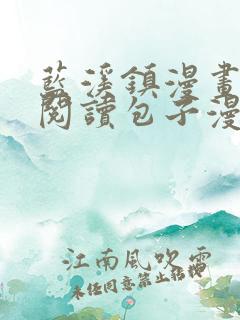 藍溪鎮漫畫
閱讀包子漫
江南風吹雪
未经同意禁止转载